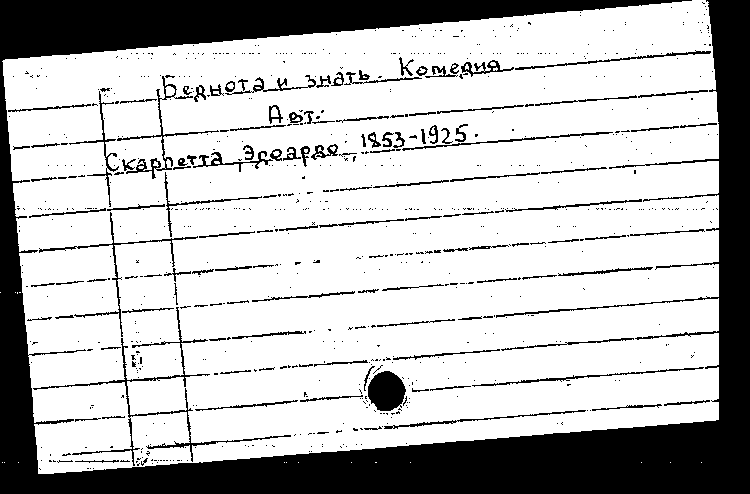 Беднота и знать. Комедия
Авт.:
Скарпетта, Эдоардо, 1853-1925.